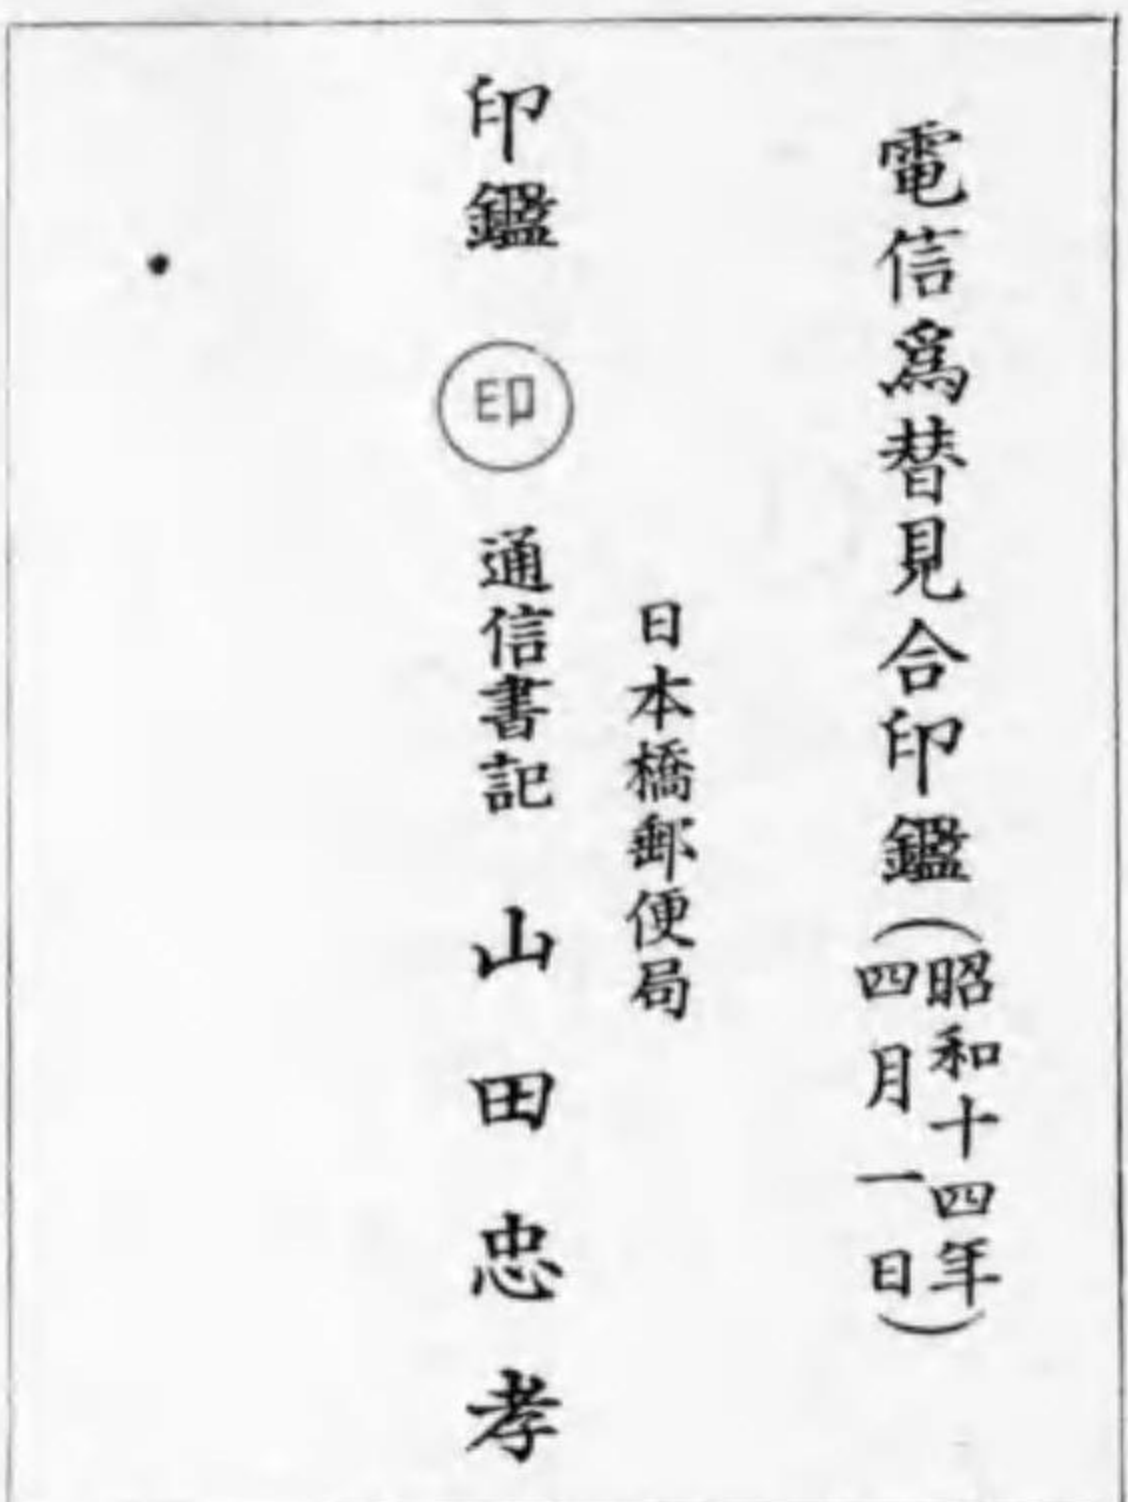 電信爲替見合印鑑(昭和十四年四月一日)
日本橋郵便局
印鑑 印 通信書記 山田忠孝